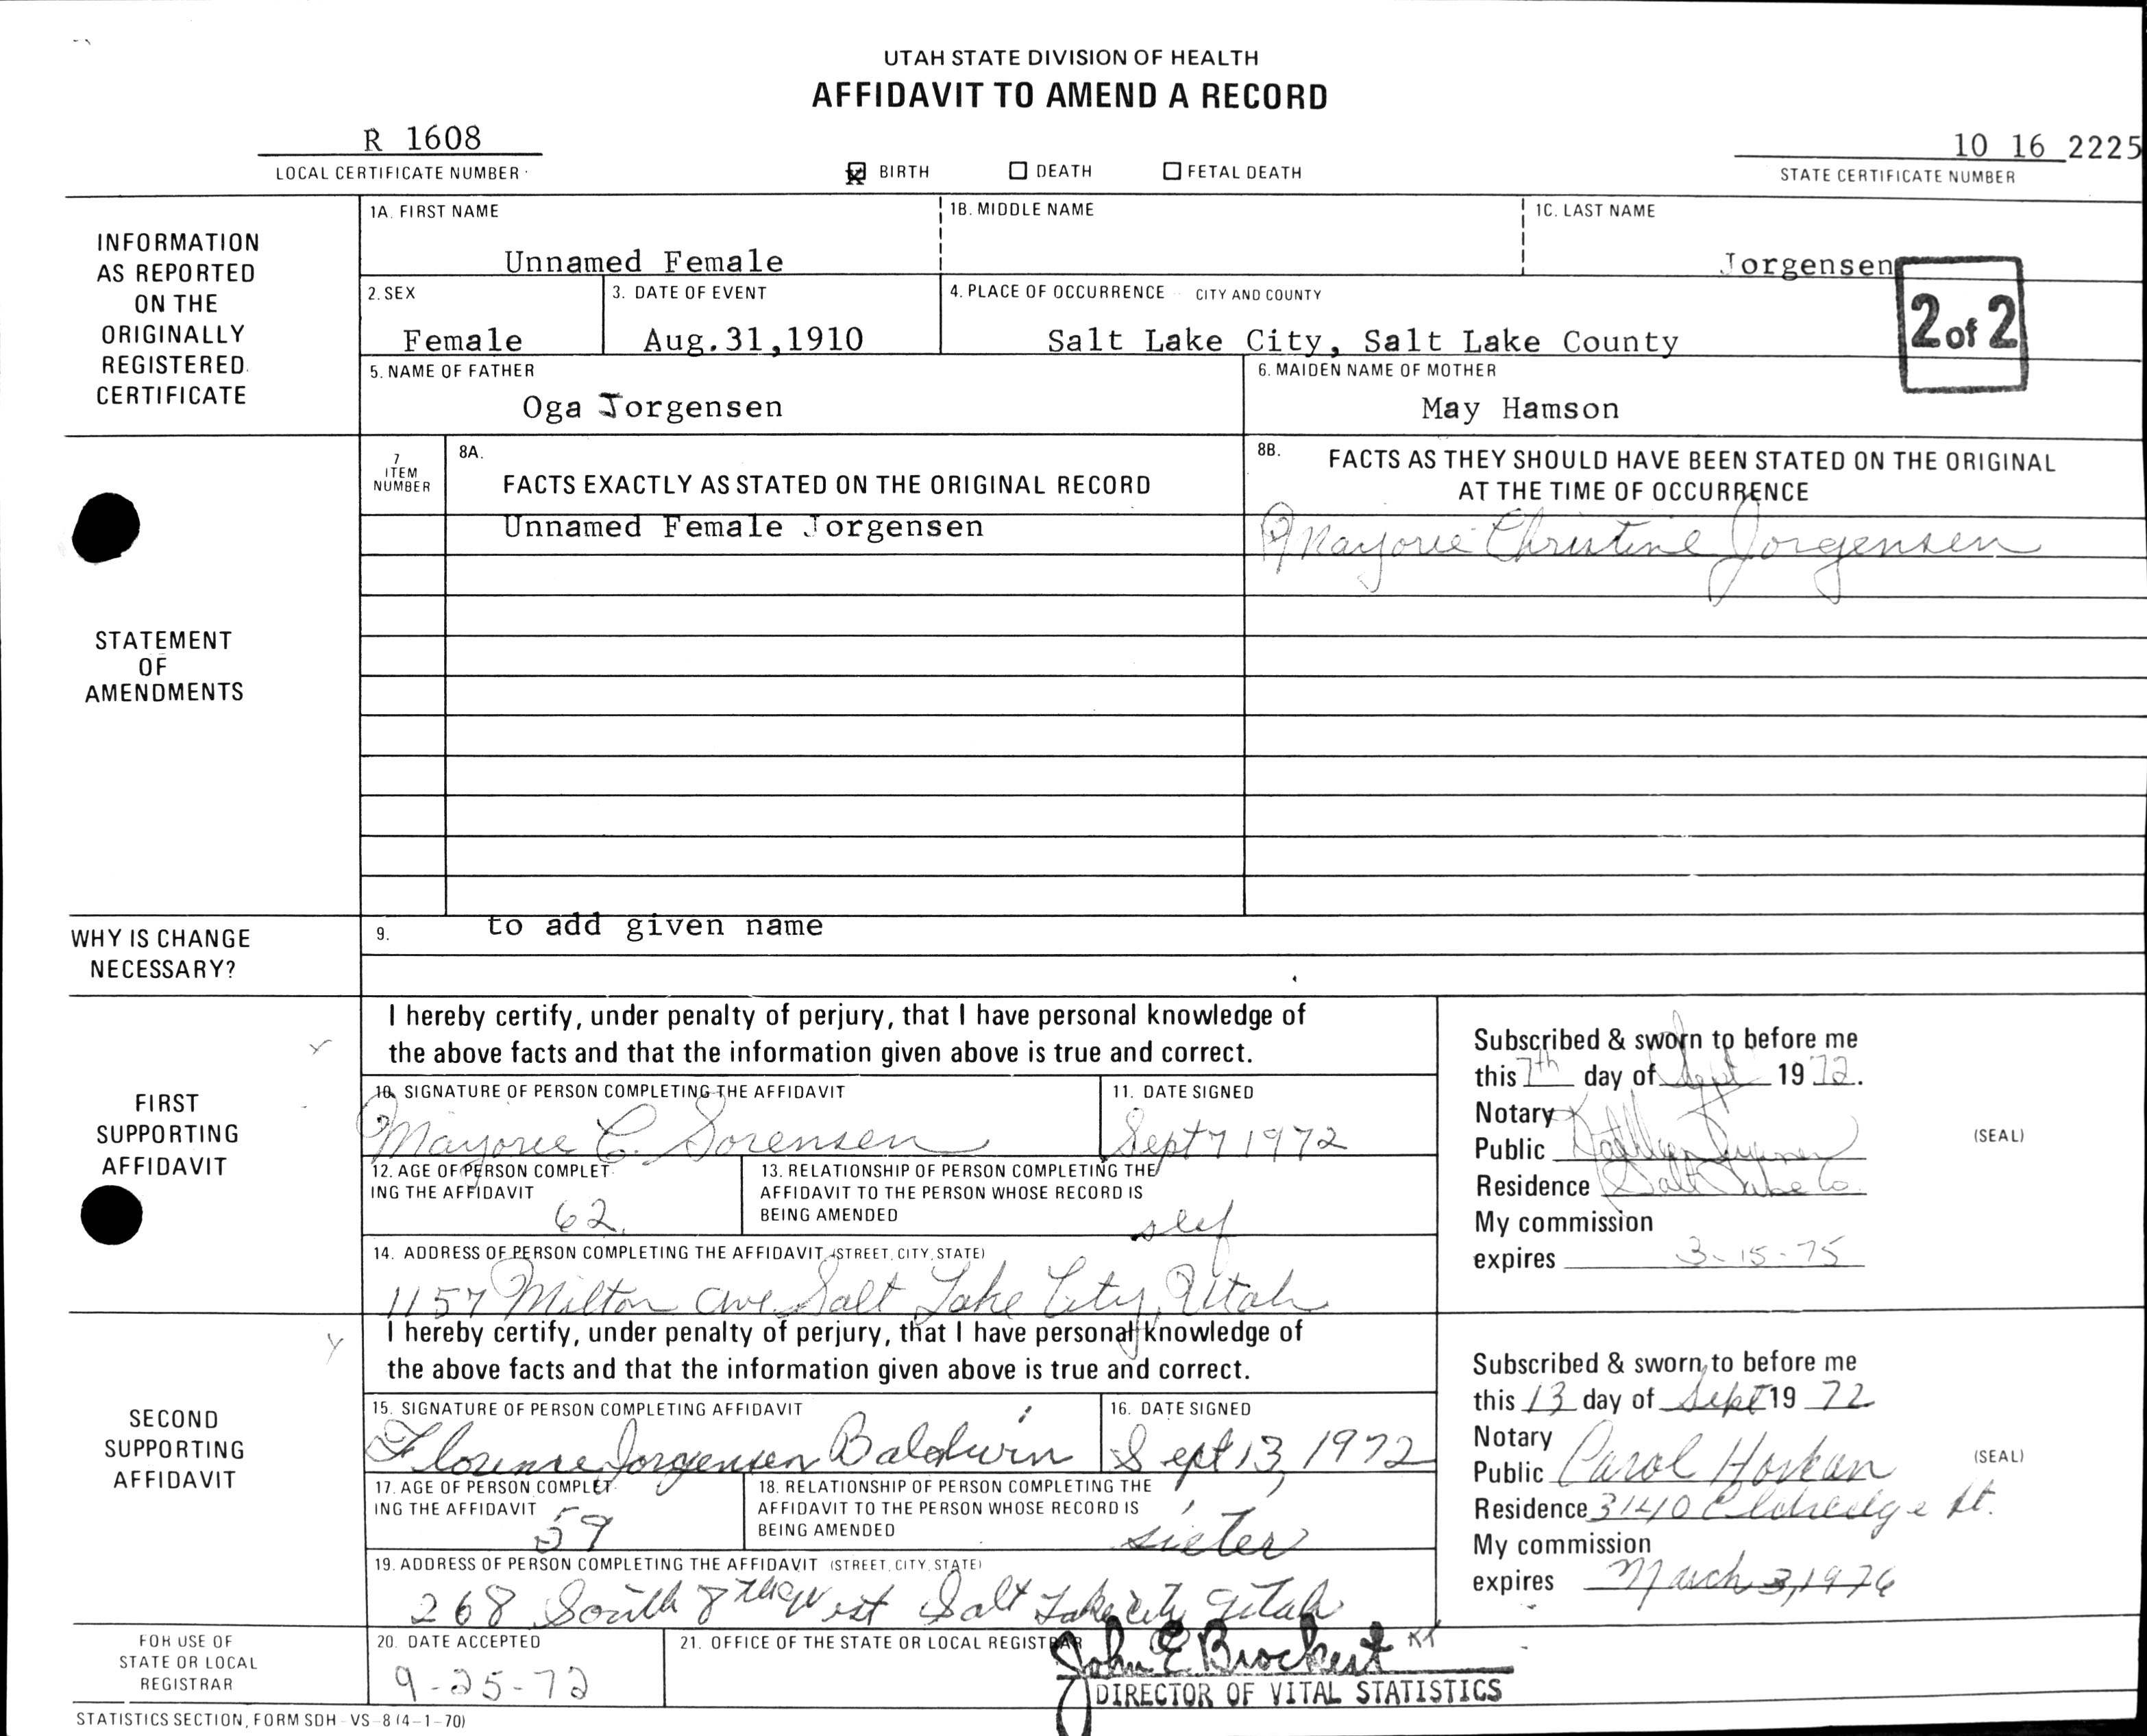 UTAH STATE DIVISION OF HEALTH
AFFIDAVIT TO AMEND A RECORD
R 1608
10 16 2225
LOCAL CERTIFICATE NUMBER
BIRTH DEATH FETAL DEATH
STATE CERTIFICATE NUMBER
INFORMATION AS REPORTED ON THE ORIGINALLY REGISTERED CERTIFICATE
1A. FIRST NAME 1B. MIDDLE NAME 1C. LAST NAME
Unnamed Female Jorgensen
2. SEX 3. DATE OF EVENT 4. PLACE OF OCCURRENCE CITY AND COUNTY
Female Aug.31,1910 Salt Lake City, Salt Lake County
2 of 2
5. NAME OF FATHER 6. MAIDEN NAME OF MOTHER
Oga Jorgensen May Hamson
STATEMENT OF AMENDMENTS
7 ITEM NUMBER
8A. FACTS EXACTLY AS STATED ON THE ORIGINAL RECORD
8B. FACTS AS THEY SHOULD HAVE BEEN STATED ON THE ORIGINAL
AT THE TIME OF OCCURRENCE
Unnamed Female Jorgensen Marjorie Christine Jorgensen
WHY IS CHANGE NECESSARY?
9. to add given name
FIRST SUPPORTING AFFIDAVIT
I hereby certify, under penalty of perjury, that I have personal knowledge of
the above facts and that the information given above is true and correct.
10. SIGNATURE OF PERSON COMPLETING THE AFFIDAVIT 11. DATE SIGNED
Marjorie C. Sorensen Sept 7 1972
12. AGE OF PERSON COMPLET-
ING THE AFFIDAVIT
62
13. RELATIONSHIP OF PERSON COMPLETING THE
AFFIDAVIT TO THE PERSON WHOSE RECORD IS
BEING AMENDED
slef
14. ADDRESS OF PERSON COMPLETING THE AFFIDAVIT (STREET, CITY, STATE)
1157 Milton Ave Salt Lake City, Utah
Subscribed & sworn to before me
this 7th day of Sept 1972.
Notary
Public Kathleen
Residence Salt Lake Co.
My commission
expires 3-15-75
(SEAL)
SECOND SUPPORTING AFFIDAVIT
I hereby certify, under penalty of perjury, that I have personal knowledge of
the above facts and that the information given above is true and correct.
15. SIGNATURE OF PERSON COMPLETING AFFIDAVIT 16. DATE SIGNED
Florence Jorgensen Baldwin Sept 13, 1972
17. AGE OF PERSON COMPLET-
ING THE AFFIDAVIT
59
18. RELATIONSHIP OF PERSON COMPLETING THE
AFFIDAVIT TO THE PERSON WHOSE RECORD IS
BEING AMENDED
sister
19. ADDRESS OF PERSON COMPLETING THE AFFIDAVIT (STREET, CITY, STATE)
268 South 8 West Salt Lake City Utah
Subscribed & sworn to before me
this 13 day of Sept 19 72
Notary
Public Carol
Residence 3140 Eldredge St.
My commission
expires March 3, 1976
(SEAL)
FOR USE OF STATE OR LOCAL REGISTRAR
20. DATE ACCEPTED
9-25-72
21. OFFICE OF THE STATE OR LOCAL REGISTRAR
John E Brockert
DIRECTOR OF VITAL STATISTICS
STATISTICS SECTION, FORM SDH-VS-8 (4-1-70)